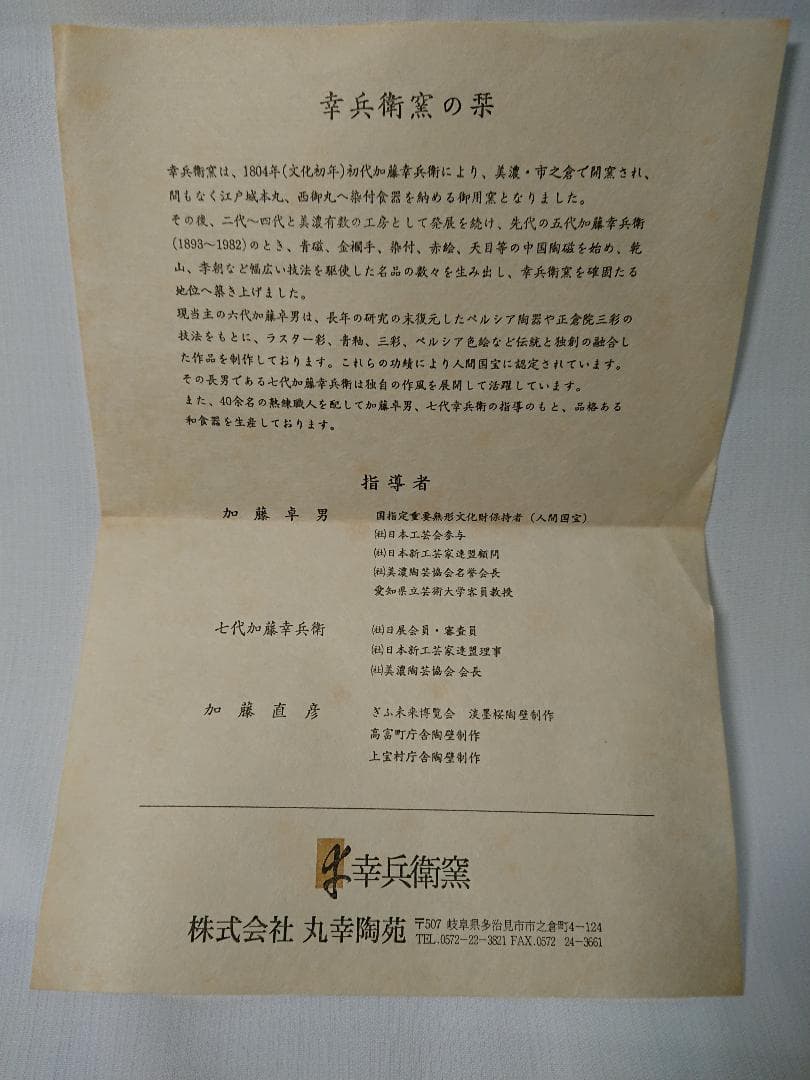 幸兵衛窯の栞
幸兵衛窯は、1804年(文化初年)初代加藤幸兵衛により、美濃・市之倉で開窯され、
間もなく江戸城本丸、西御丸へ染付食器を納める御用窯となりました。
その後、二代〜四代と美濃有数の工房として発展を続け、先代の五代加藤幸兵衛
(1893〜1982)のとき、青磁、金襴手、染付、赤絵、天目等の中国陶磁を始め、乾
山、李朝など幅広い技法を駆使した名品の数々を生み出し、幸兵衛窯を確固たる
地位へ築き上げました。
現当主の六代加藤卓男は、長年の研究の末復元したペルシア陶器や正倉院三彩の
技法をもとに、ラスター彩、青釉、三彩、ペルシア色絵など伝統と独創の融合し
た作品を制作しております。これらの功績により人間国宝に認定されています。
その長男である七代加藤幸兵衛は独自の作風を展開して活躍しています。
また、40余名の熟練職人を配して加藤卓男、七代幸兵衛の指導のもと、品格ある
和食器を生産しております。
指導者
加藤卓男 国指定重要無形文化財保持者(人間国宝)
㈳日本工芸会参与
㈳日本新工芸家連盟顧問
㈳美濃陶芸協会名誉会長
愛知県立芸術大学客員教授
七代加藤幸兵衛 ㈳日展会員・審査員
㈳日本新工芸家連盟理事
㈳美濃陶芸協会会長
加藤直彦 ぎふ未来博覧会 淡墨桜陶壁制作
高富町庁舎陶壁制作
上宝村庁舎陶壁制作
幸兵衛窯
株式会社 丸幸陶苑 〒507 岐阜県多治見市市之倉町4-124
TEL.0572-22-3821 FAX.0572 24-3661